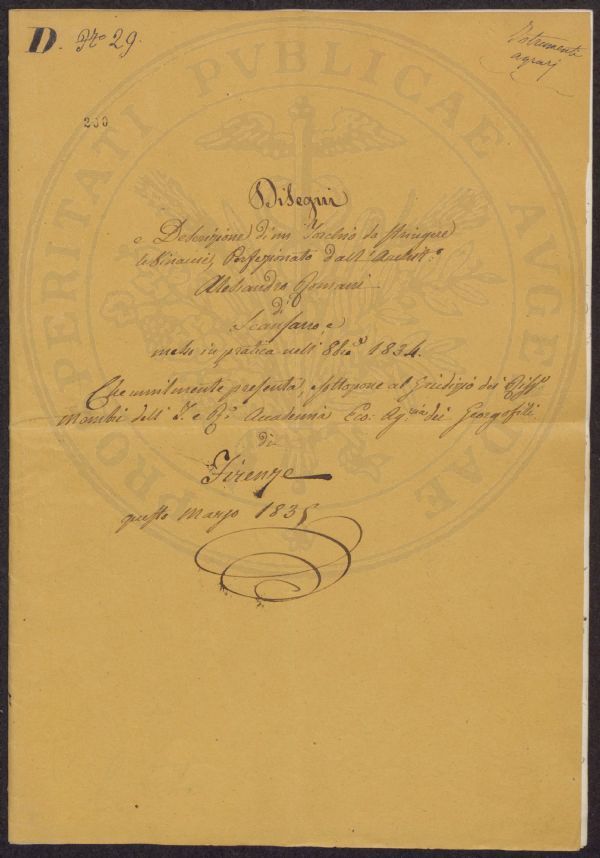 D. No 29.
Istrumenti
agrarj
260
PROSPERITATI PUBLICAE AUGENDAE
Disegni
e Descrizione di un Torchio da stringere
le Vinacce, Perfezionato dall' Archit.o
Alessandro Romani
di
Scansano, e
messo in pratica nell' 8bre 1834.
Che umilmente presenta, e sottopone al Giudizio dei
Membri dell' I. e R. Accademia Eco: Ag.ria dei Georgofili
di
Firenze
questo Marzo 1835